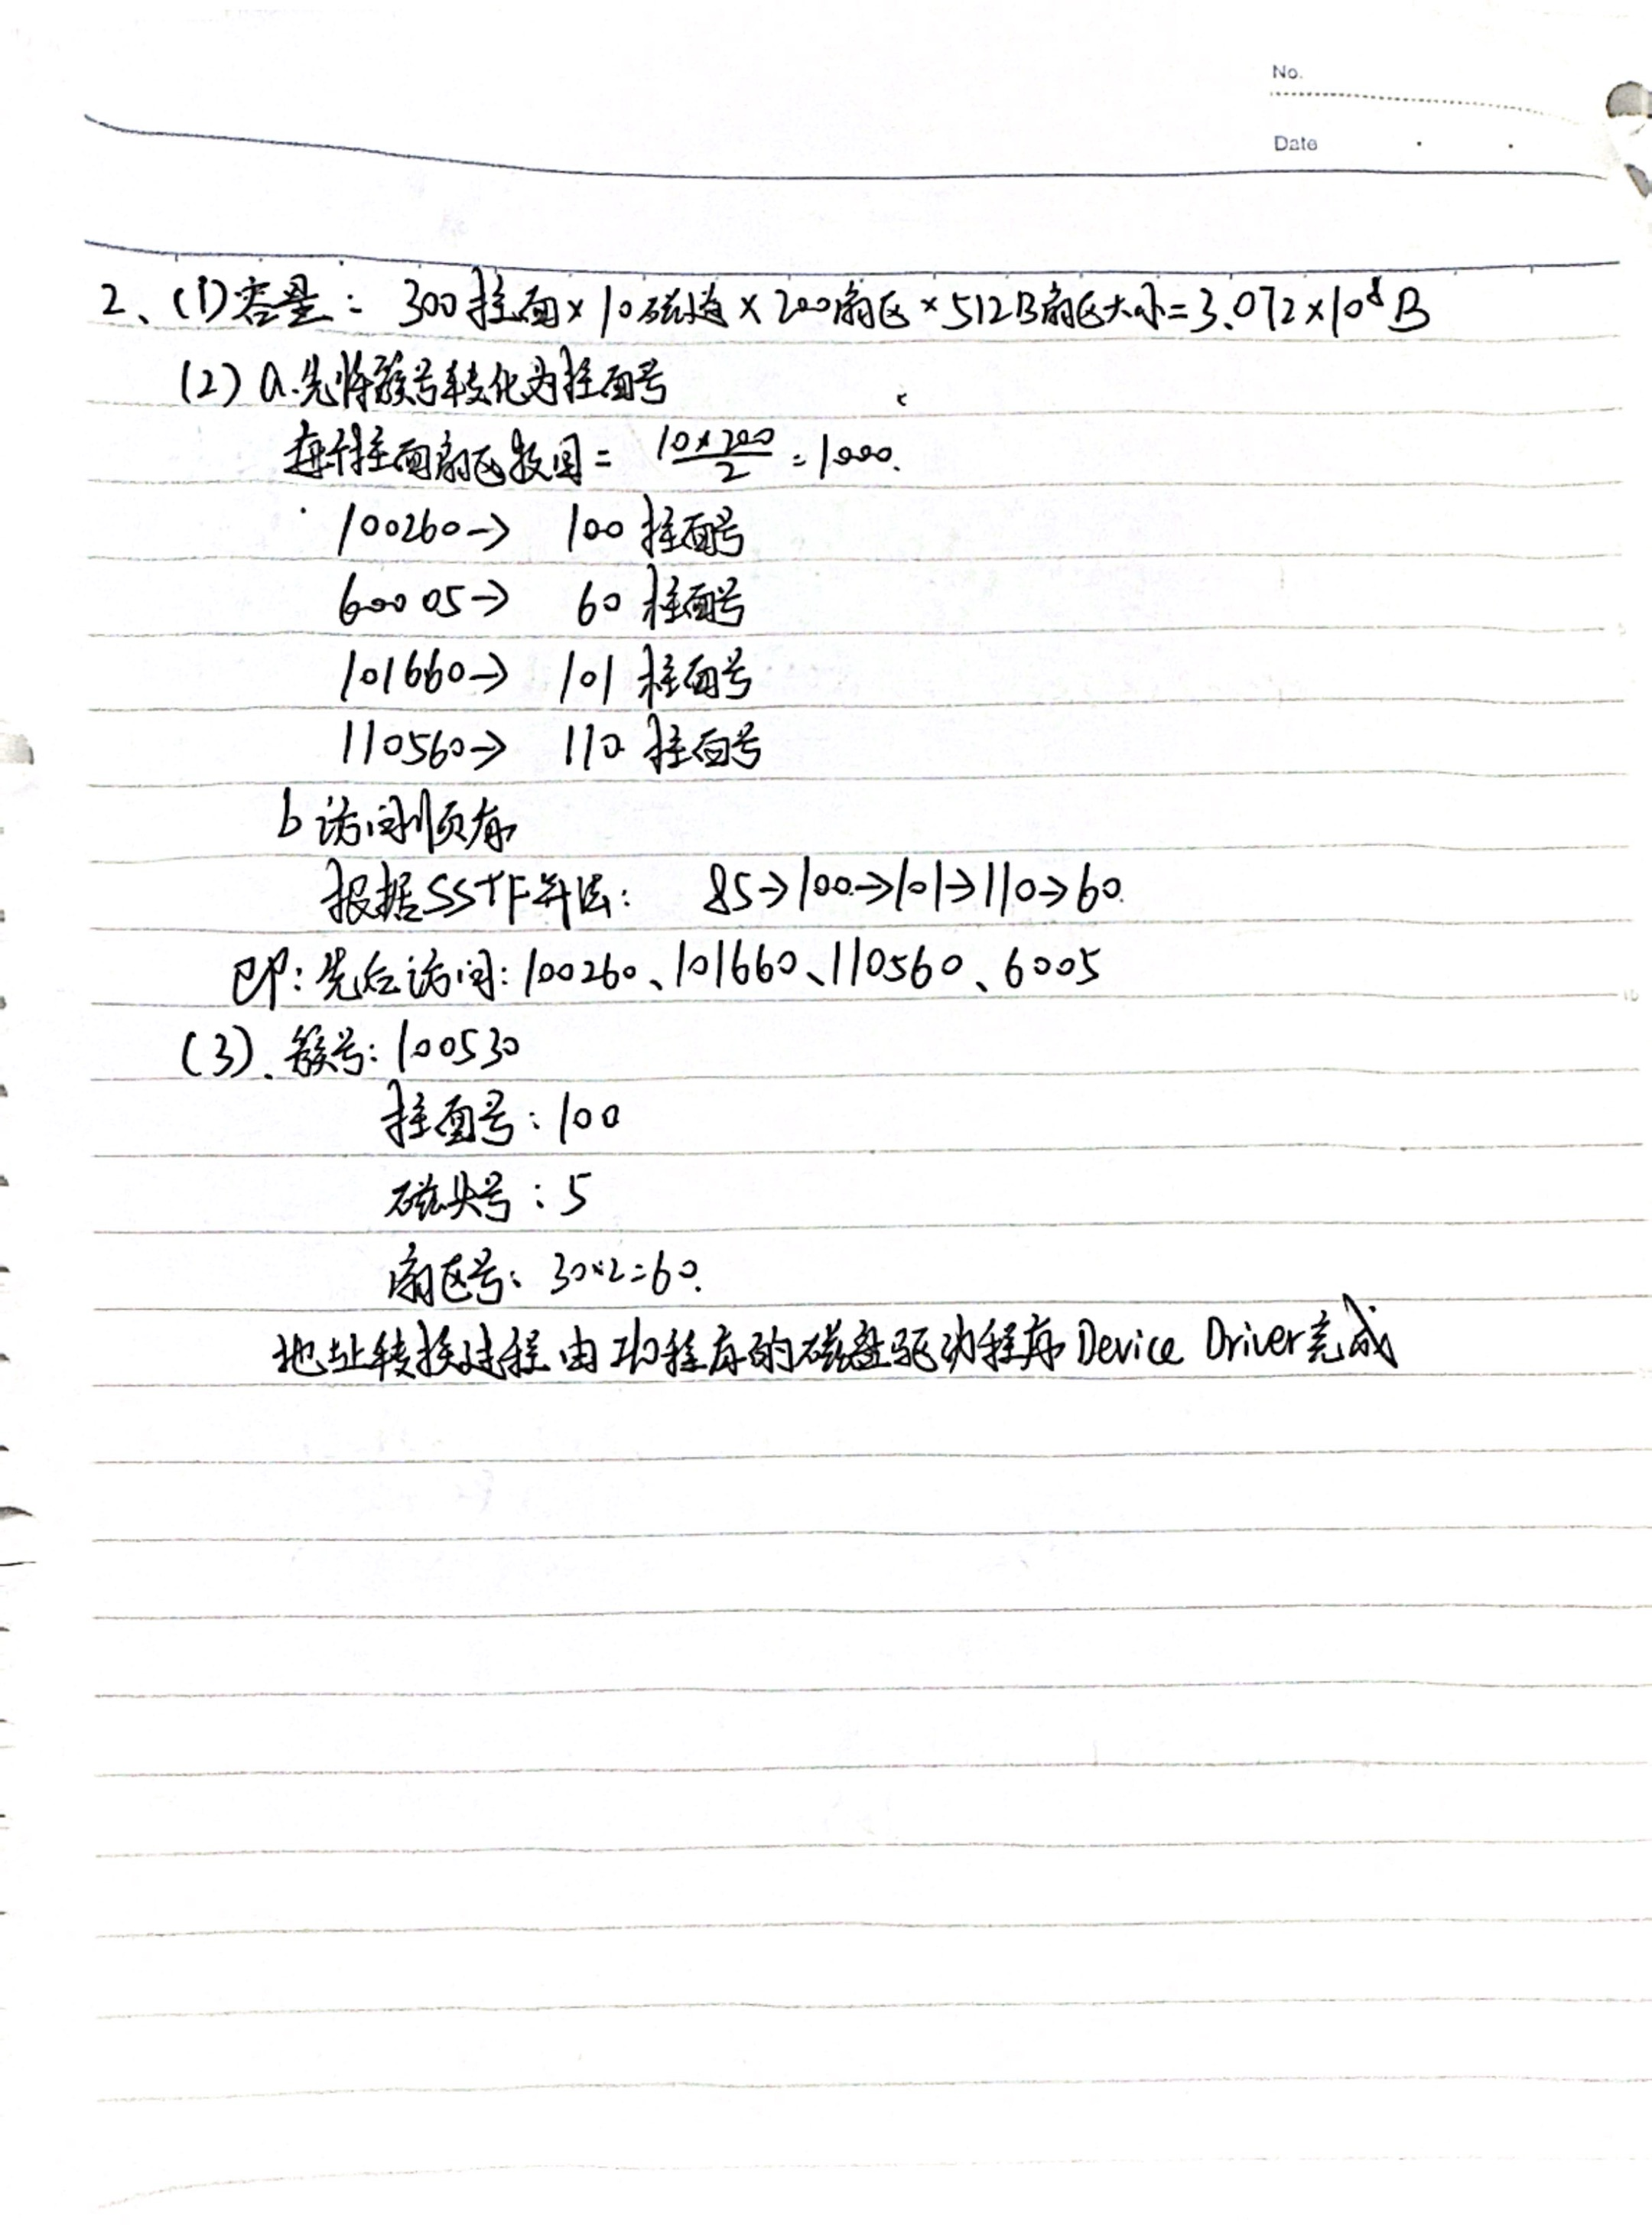 No.
Date
2、(1)容量: 300柱面×10磁道×200扇区×512B扇区大小=3.072×10⁸B
(2) a.先将簇号转化为柱面号
每个柱面扇区数目= 10×200/2 =1000.
100260→ 100柱面号
60005→ 60柱面号
101660→ 101柱面号
110560→ 110柱面号
b 访问顺序
根据SSTF算法: 85→100→101→110→60.
即:先后访问:100260、101660、110560、6005
(3). 簇号:100530
柱面号:100
磁头号:5
扇区号:30×2=60.
地址转换过程由 程序的磁盘驱动程序Device Driver完成